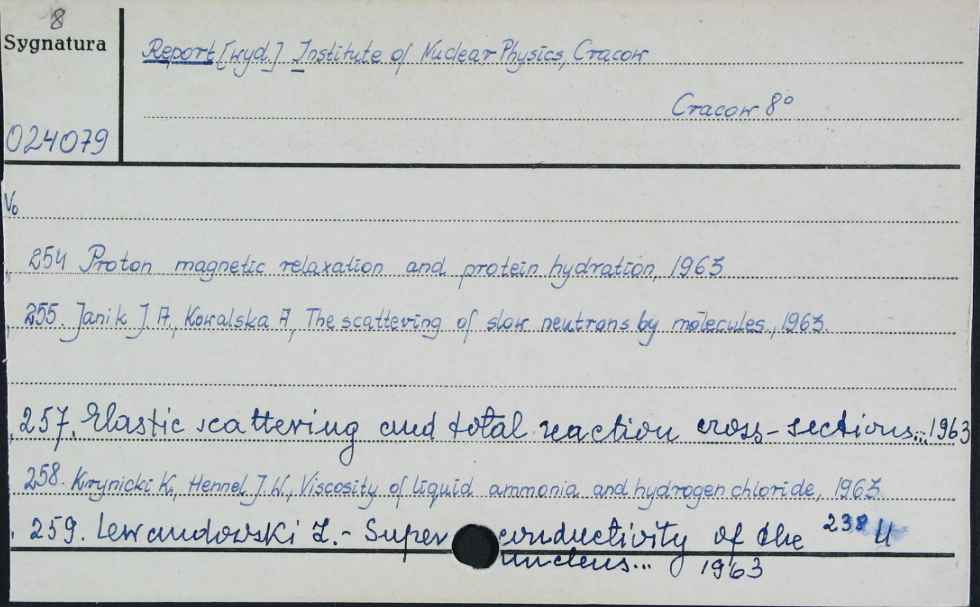 8
Sygnatura
Report [wyd.] Institute of Nuclear Physics, Cracow
Cracow 8°
024079
Vo
254 Proton magnetic relaxation and protein hydration, 1963
255. Janik J. A., Kowalska A, The scattering of slow neutrons by molecules., 1963.
257. Elastic scattering and total reaction cross-sections... 1963
258. Krynicki K., Hennel J. W., Viscosity of liquid ammonia and hydrogen chloride, 1963.
259. Lewandowski Z. - Super conductivity of the 238 U
nucleus... 1963